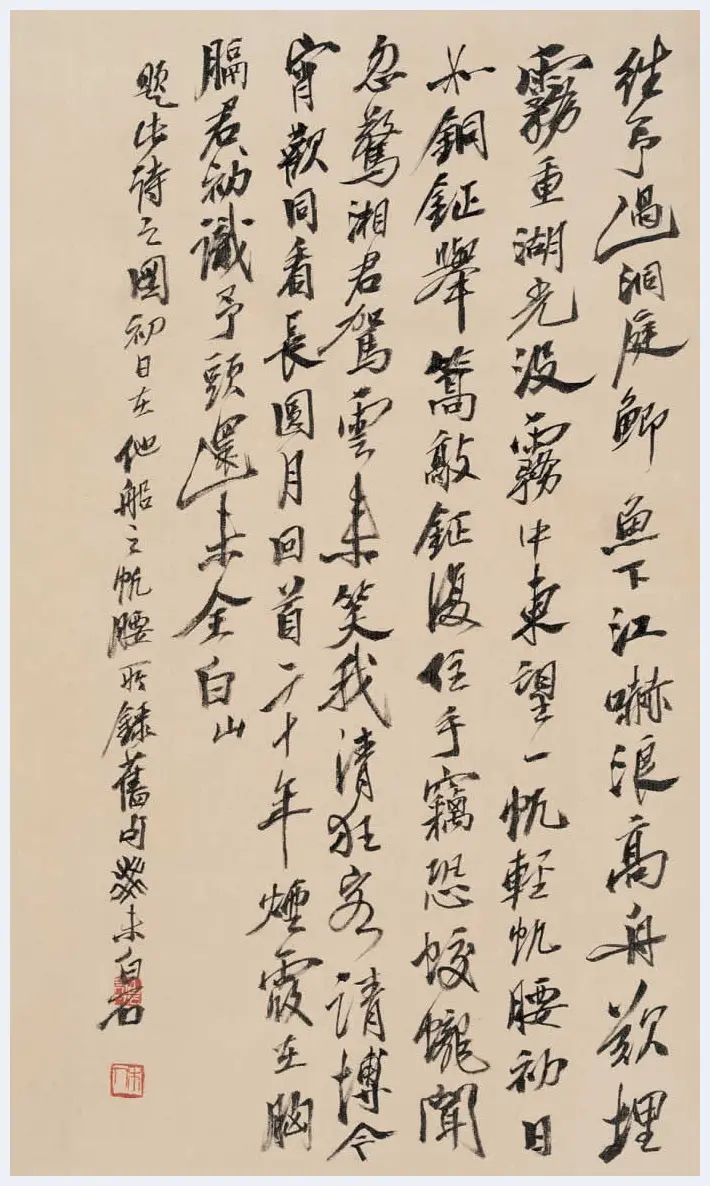 往予過洞庭鯽魚下江嚇浪高舟欺埋
霧重湖光没霧中東望一帆輕帆腰初日
如銅鉦舉篙敲鉦復住手竊恐蛟蠬聞
忽驚湘君駕雲來笑我清狂客請博今
宵歡同看長圓月回首二十年煙霞在胸
膈君初識予頭還未全白山
題此詩之圖初日在他船之帆腰所錄舊句癸未白石